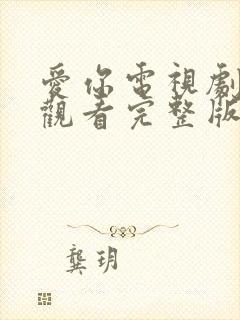 愛你電視劇
觀看完整版
龔玥